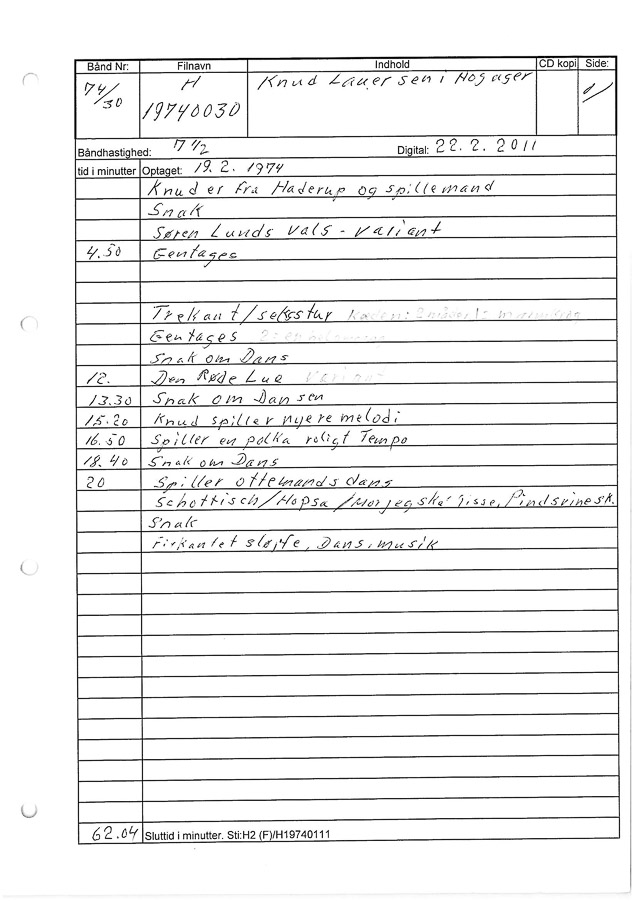 Bånd Nr: Filnavn Indhold CD kopi Side:
74/30 H 19740030 Knud Lauersen i Hogager 1/
Båndhastighed: 7 1/2 Digital: 22.2.2011
tid i minutter Optaget: 19.2.1974
Knud er fra Haderup og spillemand
Snak
Søren Lunds vals - variant
4.50 Gentages
Trekant/seksstur
Gentages
Snak om Dans
12. Den Røde Lue
13.30 Snak om Dansen
15.20 Knud spiller nyere melodi
16.50 Spiller en polka roligt Tempo
18.40 Snak om Dans
20 Spiller ottemandsdans
Schottisch/Hopsa/Morjegska' tisse, Pindsvinesk.
Snak
Firkantet sløjfe, Dans, musik
62.04 Sluttid i minutter. Sti:H2 (F)/H19740111